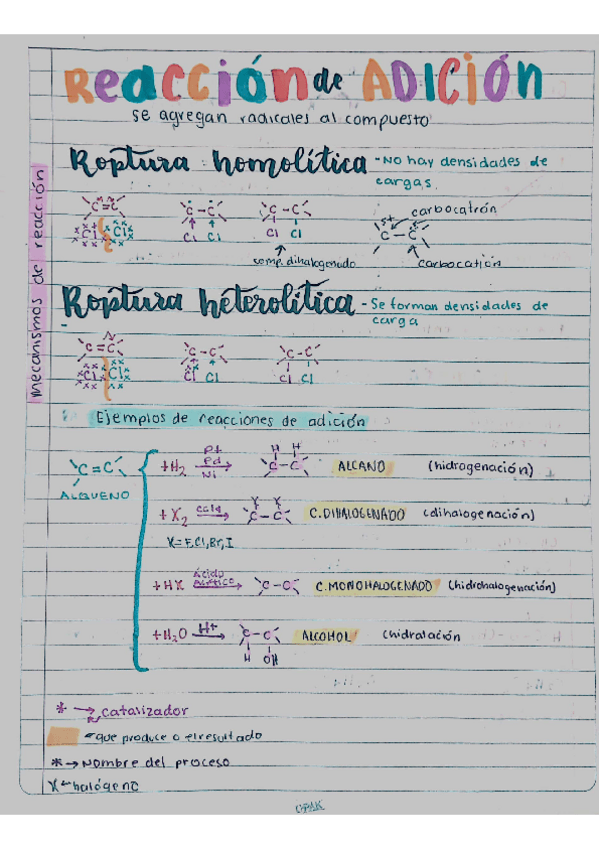 Reacción de ADICIÓN
se agregan radicales al compuesto
mecanismos de reacción
Roptura homolítica - No hay densidades de
cargas
C=C C-C C-C carbocatrón
Cl Cl Cl Cl Cl Cl C-C
comp. dihalogenado carbocatión
Roptura héterolítica - Se forman densidades de
carga
C=C C-C C-C
Cl Cl Cl Cl Cl Cl
Ejemplos de reacciones de adición
C=C
ALQUENO
+H₂ Pt Pd Ni → H H C-C ALCANO (hidrogenación)
+X₂ → X X C-C C. DIHALOGENADO (dihalogenación)
X=F,Cl,Br,I
+HX Ácido → C-C C. MONOHALOGENADO (hidrohalogenación)
+H₂O H+ → C-C ALCOHOL (hidratación)
H OH
* → catalizador
que produce o el resultado
* → Nombre del proceso
X ← halógeno